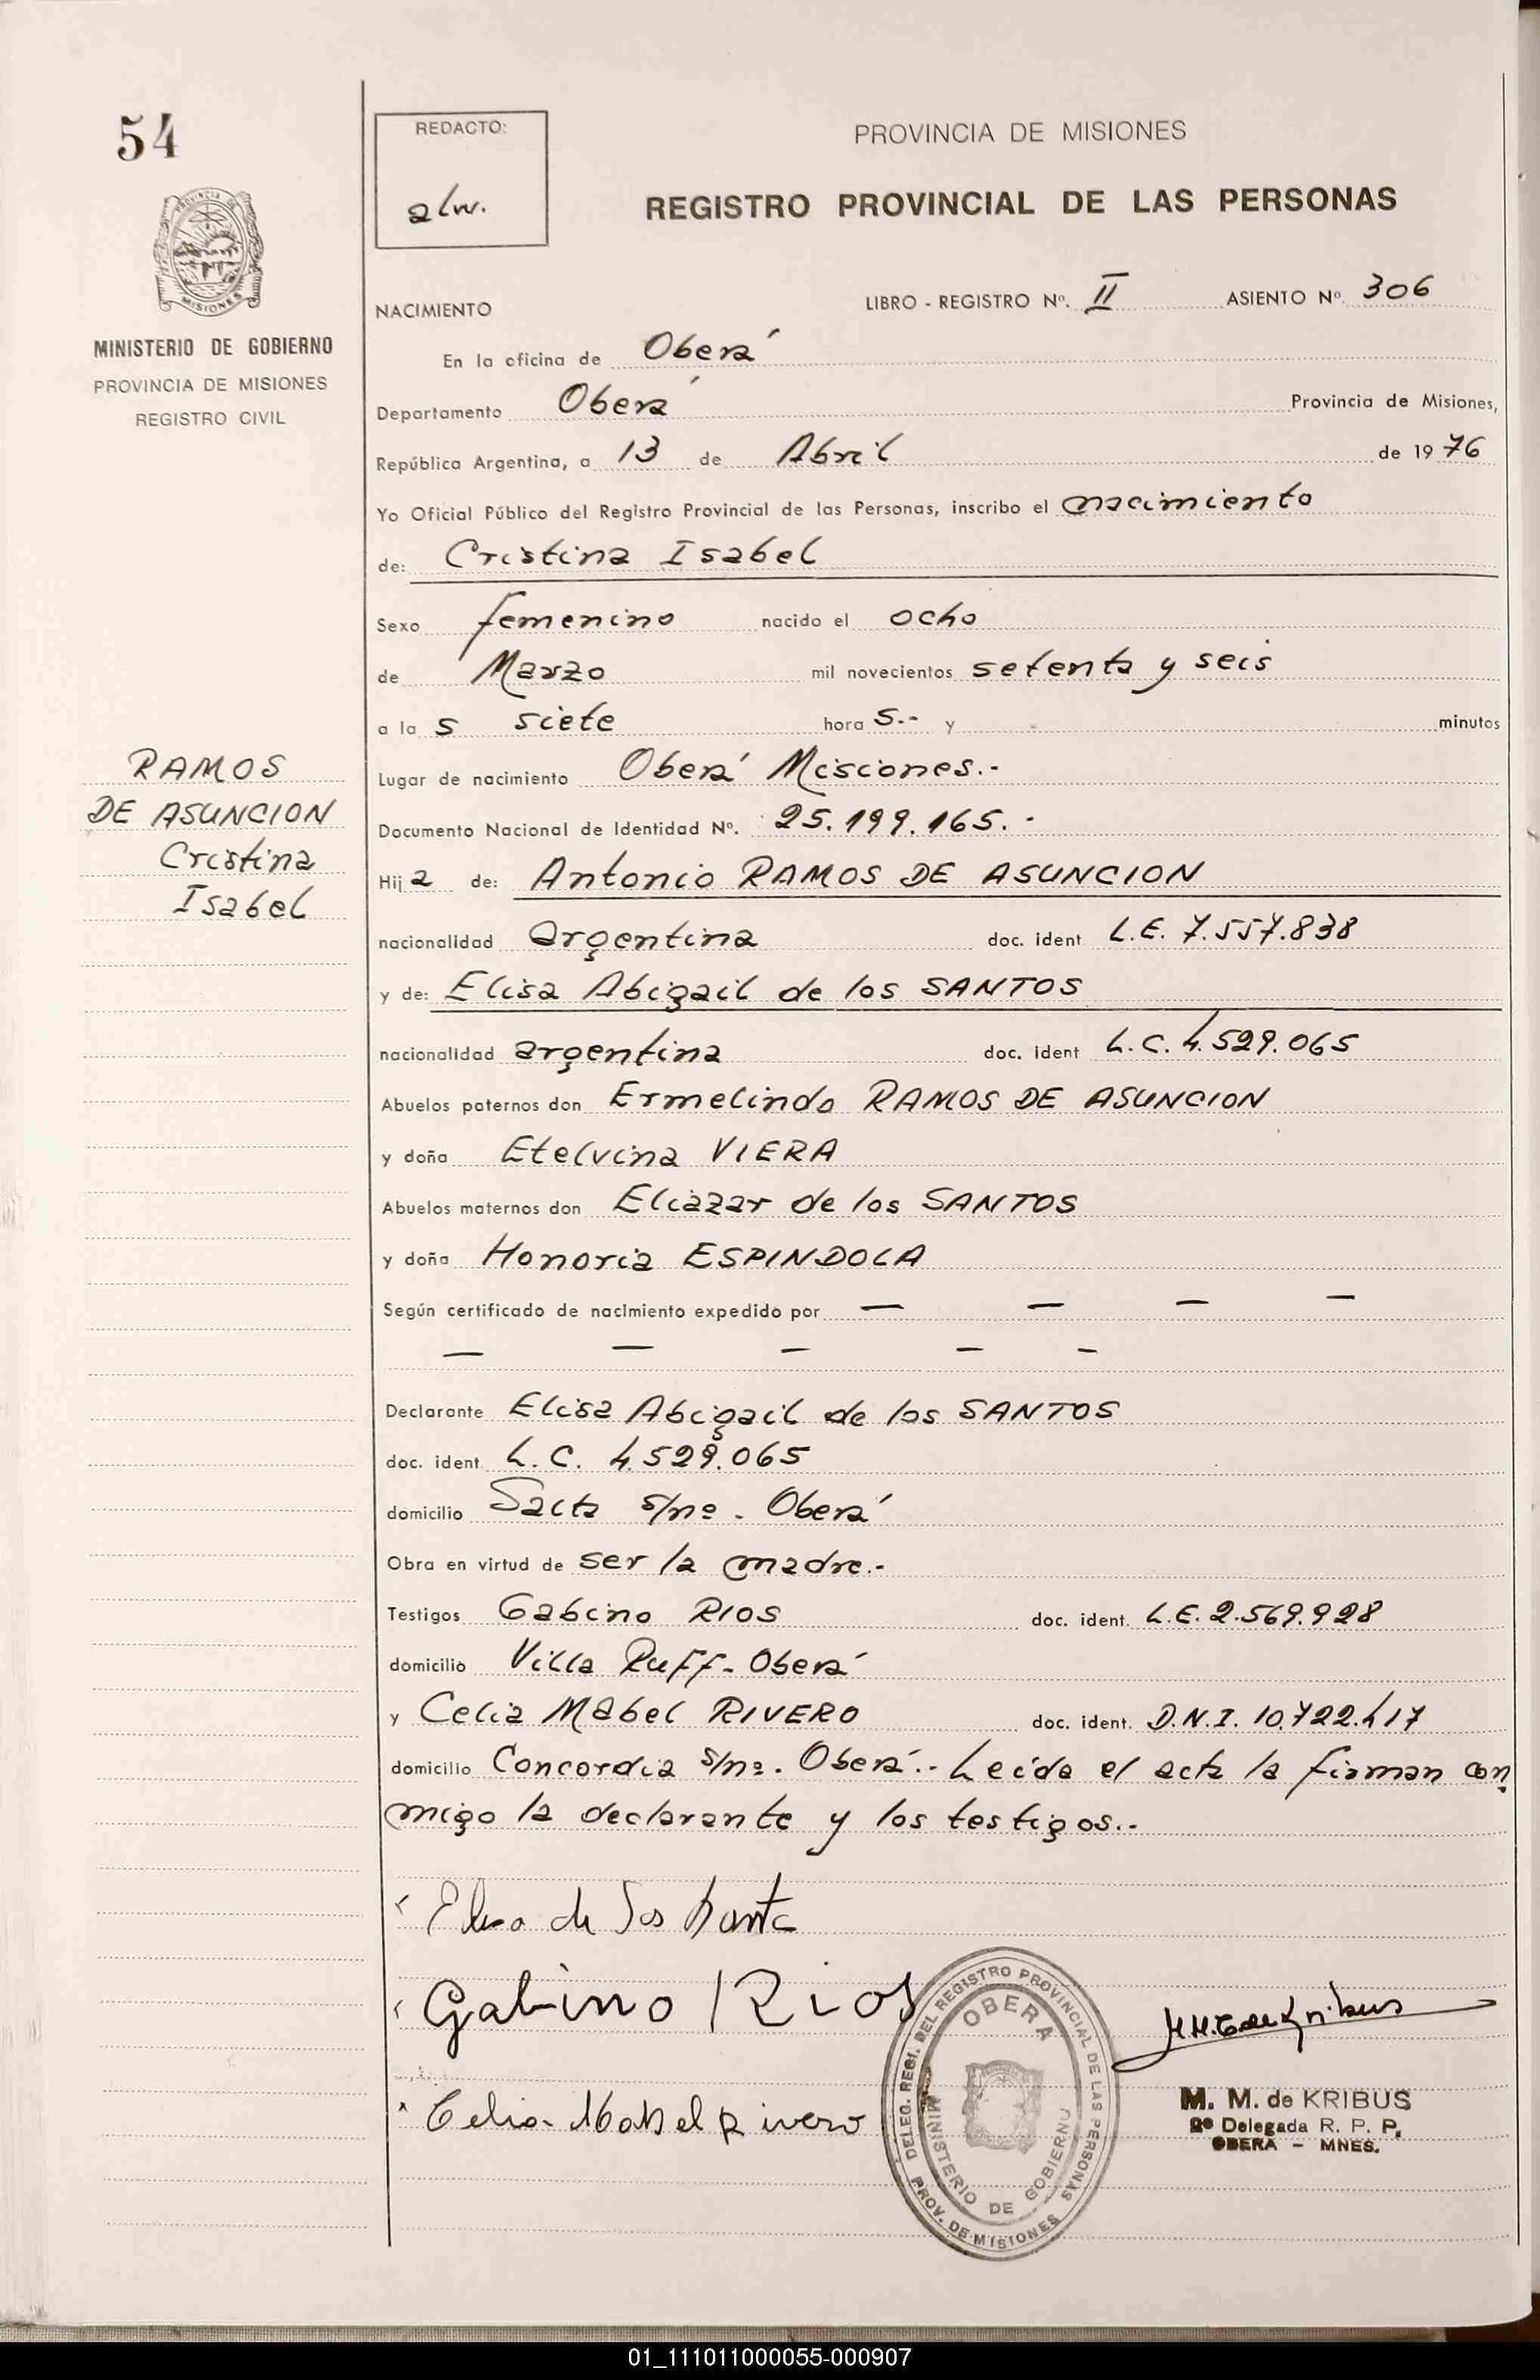 54
REDACTO:
alw.
PROVINCIA DE MISIONES
REGISTRO PROVINCIAL DE LAS PERSONAS
PROVINCIA DE
MISIONES
MINISTERIO DE GOBIERNO
PROVINCIA DE MISIONES
REGISTRO CIVIL
NACIMIENTO LIBRO - REGISTRO Nº. II ASIENTO Nº 306
En la oficina de Oberá
Departamento Oberá Provincia de Misiones,
República Argentina, a 13 de Abril de 1976
Yo Oficial Público del Registro Provincial de las Personas, inscribo el nacimiento
de: Cristina Isabel
Sexo femenino nacido el ocho
de Marzo mil novecientos setenta y seis
a la s siete hora s.- y minutos
Lugar de nacimiento Oberá Misiones.-
RAMOS
DE ASUNCION
Cristina
Isabel
Documento Nacional de Identidad Nº. 25.199.165.-
Hija de: Antonio RAMOS DE ASUNCION
nacionalidad argentina doc. ident L.E. 7.557.838
y de: Elisa Abigail de los SANTOS
nacionalidad argentina doc. ident L.C. 4.529.065
Abuelos paternos don Ermelindo RAMOS DE ASUNCION
y doña Etelvina VIERA
Abuelos maternos don Eliazar de los SANTOS
y doña Honoria ESPINDOLA
Según certificado de nacimiento expedido por — — — —
— — — — -
Declarante Elisa Abigail de los SANTOS
doc. ident. L.C. 4.529.065
domicilio Salta s/nº. Oberá
Obra en virtud de ser la madre.-
Testigos Gabino RIOS doc. ident. L.E. 2.569.928
domicilio Villa Ruff- Oberá
y Celia Mabel RIVERO doc. ident. D.N.I. 10.722.417
domicilio Concordia s/nº. Oberá.- Leida el acta la firman con
migo la declarante y los testigos.-
Elisa de los Santo
Gabino Rios
Celia Mabel Rivero
DELEG. REGI. DEL REGISTRO PROVINCIAL DE LAS PERSONAS
PROV. DE MISIONES
OBERA
MINISTERIO DE GOBIERNO
M. M. de Kribus
M. M. de KRIBUS
2º Delegada R. P. P.
OBERA - MNES.
01_111011000055-000907